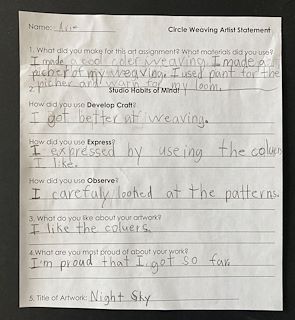 Name: Arie
Circle Weaving Artist Statement
1. What did you make for this art assignment? What materials did you use?
I made a cool coler weaving. I made a
picher of my weaving. I used pant for the
picher and yarn for my loom.
2. Studio Habits of Mind:
How did you use Develop Craft?
I got better at weaving.
How did you use Express?
I expressed by useing the coluers
I like.
How did you use Observe?
I carefuly looked at the patterns.
3. What do you like about your artwork?
I like the coluers.
4. What are you most proud of about your work?
I'm proud that I got so far.
5. Title of Artwork: Night Sky